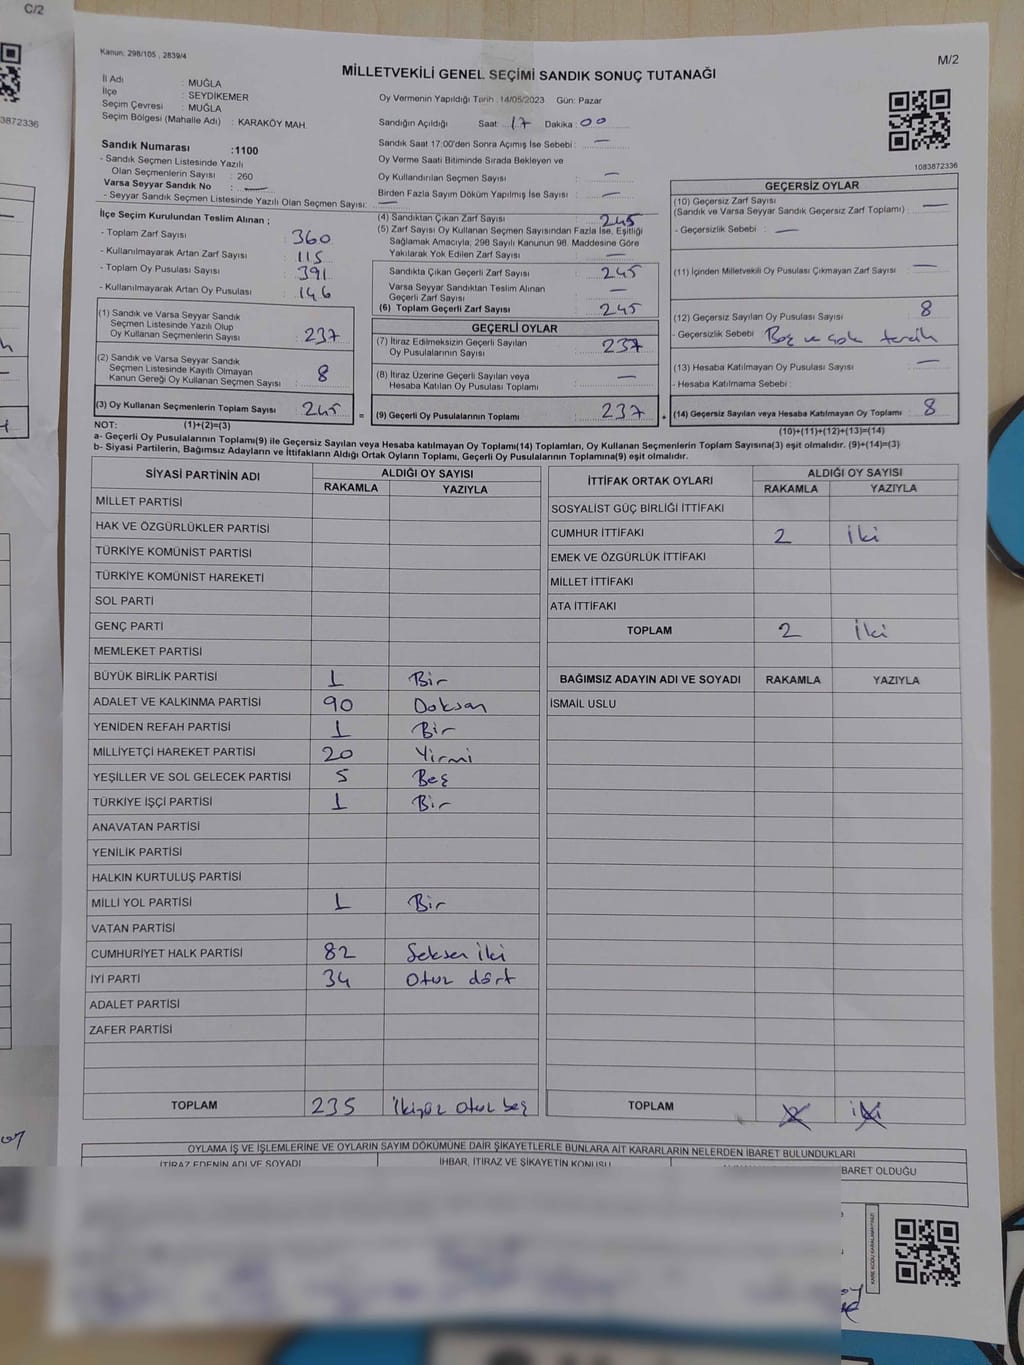 C/2
3872336
Kanun: 298/105 , 2839/4
M/2
MİLLETVEKİLİ GENEL SEÇİMİ SANDIK SONUÇ TUTANAĞI
İl Adı : MUĞLA
İlçe : SEYDİKEMER
Seçim Çevresi : MUĞLA
Seçim Bölgesi (Mahalle Adı) : KARAKÖY MAH.
Oy Vermenin Yapıldığı Tarih : 14/05/2023 Gün: Pazar
Sandığın Açıldığı Saat 17 Dakika : 00
Sandık Saat 17:00'den Sonra Açımış İse Sebebi : —
Oy Verme Saati Bitiminde Sırada Bekleyen ve
Oy Kullandırılan Seçmen Sayısı : —
Birden Fazla Sayım Döküm Yapılmış İse Sayısı : —
1083872336
Sandık Numarası :1100
- Sandık Seçmen Listesinde Yazılı
Olan Seçmenlerin Sayısı : 260
Varsa Seyyar Sandık No : —
- Seyyar Sandık Seçmen Listesinde Yazılı Olan Seçmen Sayısı: —
İlçe Seçim Kurulundan Teslim Alınan ;
- Toplam Zarf Sayısı : 360
- Kullanılmayarak Artan Zarf Sayısı : 115
- Toplam Oy Pusulası Sayısı : 391
- Kullanılmayarak Artan Oy Pusulası : 146
(1) Sandık ve Varsa Seyyar Sandık
Seçmen Listesinde Yazılı Olup
Oy Kullanan Seçmenlerin Sayısı : 237
(2) Sandık ve Varsa Seyyar Sandık
Seçmen Listesinde Kayıtlı Olmayan
Kanun Gereği Oy Kullanan Seçmen Sayısı : 8
(3) Oy Kullanan Seçmenlerin Toplam Sayısı : 245 =
(4) Sandıktan Çıkan Zarf Sayısı : 245
(5) Zarf Sayısı Oy Kullanan Seçmen Sayısından Fazla İse, Eşitliği
Sağlamak Amacıyla; 298 Sayılı Kanunun 98. Maddesine Göre
Yakılarak Yok Edilen Zarf Sayısı : —
Sandıkta Çıkan Geçerli Zarf Sayısı : 245
Varsa Seyyar Sandıktan Teslim Alınan
Geçerli Zarf Sayısı : —
(6) Toplam Geçerli Zarf Sayısı : 245
GEÇERLİ OYLAR
(7) İtiraz Edilmeksizin Geçerli Sayılan
Oy Pusulalarının Sayısı : 237
(8) İtiraz Üzerine Geçerli Sayılan veya
Hesaba Katılan Oy Pusulası Toplamı : —
(9) Geçerli Oy Pusulalarının Toplamı : 237 +
GEÇERSİZ OYLAR
(10) Geçersiz Zarf Sayısı
(Sandık ve Varsa Seyyar Sandık Geçersiz Zarf Toplamı) : —
- Geçersizlik Sebebi : —
(11) İçinden Milletvekili Oy Pusulası Çıkmayan Zarf Sayısı : —
(12) Geçersiz Sayılan Oy Pusulası Sayısı : 8
- Geçersizlik Sebebi : Boş ve çok tercih
(13) Hesaba Katılmayan Oy Pusulası Sayısı : —
- Hesaba Katılmama Sebebi :
(14) Geçersiz Sayılan veya Hesaba Katılmayan Oy Toplamı : 8
NOT: (1)+(2)=(3)
(10)+(11)+(12)+(13)=(14)
a- Geçerli Oy Pusulalarının Toplamı(9) ile Geçersiz Sayılan veya Hesaba katılmayan Oy Toplamı(14) Toplamları, Oy Kullanan Seçmenlerin Toplam Sayısına(3) eşit olmalıdır. (9)+(14)=(3)
b- Siyasi Partilerin, Bağımsız Adayların ve İttifakların Aldığı Ortak Oyların Toplamı, Geçerli Oy Pusulalarının Toplamına(9) eşit olmalıdır.
SİYASİ PARTİNİN ADI ALDIĞI OY SAYISI
RAKAMLA YAZIYLA
MİLLET PARTİSİ
HAK VE ÖZGÜRLÜKLER PARTİSİ
TÜRKİYE KOMÜNİST PARTİSİ
TÜRKİYE KOMÜNİST HAREKETİ
SOL PARTİ
GENÇ PARTİ
MEMLEKET PARTİSİ
BÜYÜK BİRLİK PARTİSİ 1 Bir
ADALET VE KALKINMA PARTİSİ 90 Doksan
YENİDEN REFAH PARTİSİ 1 Bir
MİLLİYETÇİ HAREKET PARTİSİ 20 Yirmi
YEŞİLLER VE SOL GELECEK PARTİSİ 5 Beş
TÜRKİYE İŞÇİ PARTİSİ 1 Bir
ANAVATAN PARTİSİ
YENİLİK PARTİSİ
HALKIN KURTULUŞ PARTİSİ
MİLLİ YOL PARTİSİ 1 Bir
VATAN PARTİSİ
CUMHURİYET HALK PARTİSİ 82 Seksen iki
İYİ PARTİ 34 Otuz dört
ADALET PARTİSİ
ZAFER PARTİSİ
TOPLAM 235 İkiyüz otuz beş
İTTİFAK ORTAK OYLARI ALDIĞI OY SAYISI
RAKAMLA YAZIYLA
SOSYALİST GÜÇ BİRLİĞİ İTTİFAKI
CUMHUR İTTİFAKI 2 İki
EMEK VE ÖZGÜRLÜK İTTİFAKI
MİLLET İTTİFAKI
ATA İTTİFAKI
TOPLAM 2 İki
BAĞIMSIZ ADAYIN ADI VE SOYADI RAKAMLA YAZIYLA
İSMAİL USLU
TOPLAM 2 iki
OYLAMA İŞ VE İŞLEMLERİNE VE OYLARIN SAYIM DÖKÜMÜNE DAİR ŞİKAYETLERLE BUNLARA AİT KARARLARIN NELERDEN İBARET BULUNDUKLARI
İTİRAZ EDENİN ADI VE SOYADI İHBAR, İTİRAZ VE ŞİKAYETİN KONUSU BARET OLDUĞU